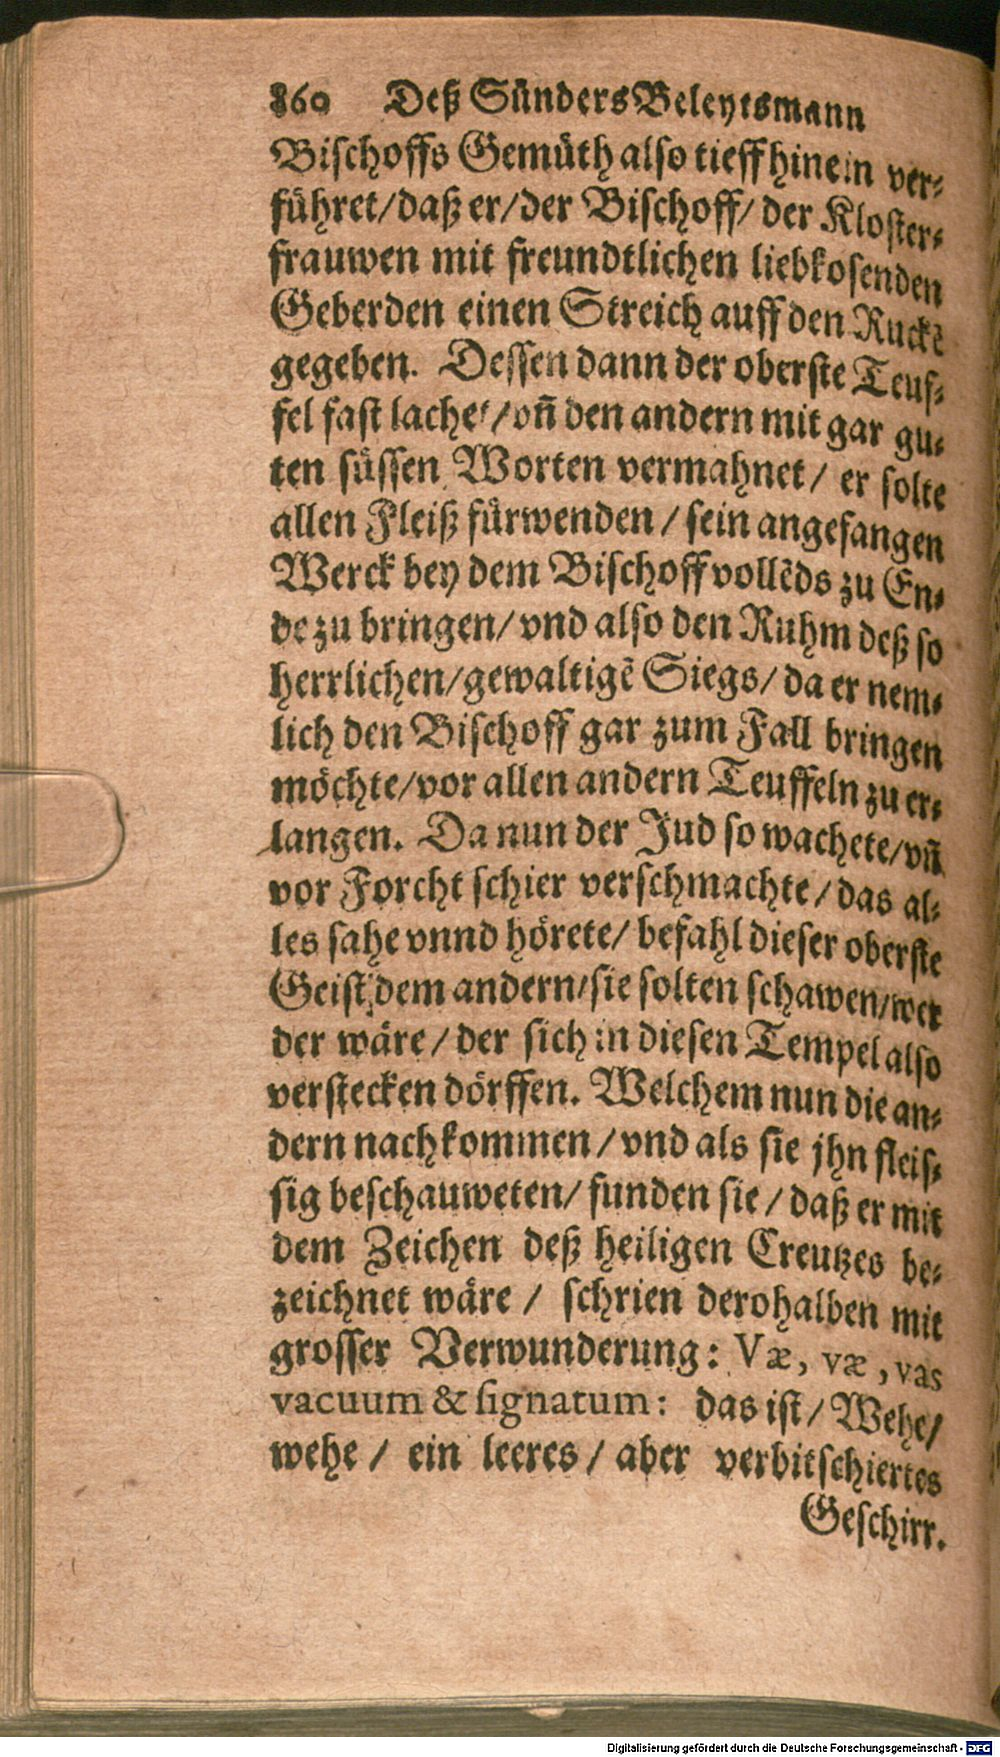 860 Deß Sünders Beleytsmann
Bischoffs Gemüth also tieff hinein ver⸗
führet/daß er/der Bischoff/ der Kloster⸗
frauwen mit freundtlichen liebkosenden
Geberden einen Streich auff den Ruckẽ
gegeben. Dessen dann der oberste Teuf⸗
fel fast lachet/vñ den andern mit gar gu⸗
ten süssen Worten vermahnet/ er solte
allen Fleiß fürwenden / sein angefangen
Werck bey dem Bischoff vollẽds zu En⸗
de zu bringen/ vnd also den Ruhm deß so
herrlichen/gewaltigẽ Siegs/ da er nem⸗
lich den Bischoff gar zum Fall bringen
möchte/vor allen andern Teuffeln zu er⸗
langen. Da nun der Jud so wachete/vñ
vor Forcht schier verschmachte/das al⸗
les sahe vnnd hörete/ befahl dieser oberste
Geist dem andern/sie solten schawen/wer
der wäre / der sich in diesen Tempel also
verstecken dörffen. Welchem nun die an⸗
dern nachkommen /vnd als sie jhn fleis⸗
sig beschauweten/ funden sie / daß er mit
dem Zeichen deß heiligen Creutzes be⸗
zeichnet wäre / schrien derohalben mit
grosser Verwunderung: Væ, væ, vas
vacuum & signatum: das ist/ Wehe/
wehe / ein leeres / aber verbitschiertes
Geschirr.
Digitalisierung gefördert durch die Deutsche Forschungsgemeinschaft - DFG